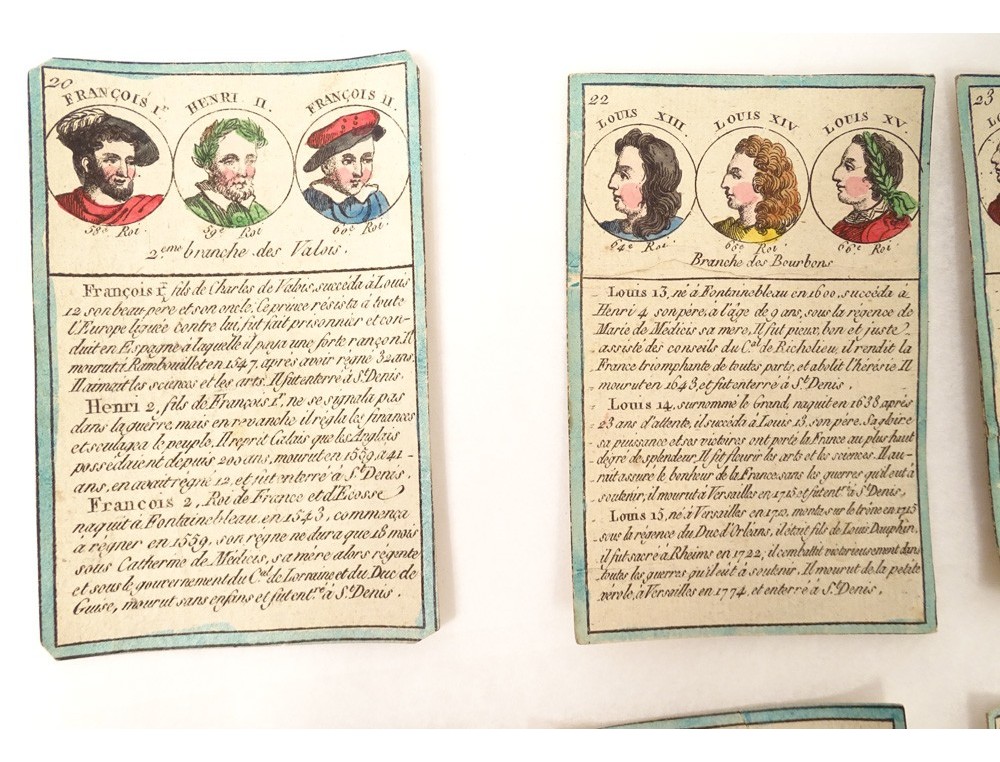 20
FRANÇOIS Ir. HENRI II. FRANÇOIS II.
58e Roi. 59e Roi. 60e Roi.
2.eme branche des Valois.
François Ir. fils de Charles de Valois, succéda à Louis
12 son beau père et son oncle. Ce prince résista à toute
l'Europe liguée contre lui, fut fait prisonnier et con-
duit en Espagne à laquelle il paya une forte rançon. Il
mourut à Rambouillet en 1547, après avoir régné 32 ans.
Il aimait les sciences et les arts. Il fut enterré à St. Denis.
Henri 2, fils de François Ir. ne se signala pas
dans la guerre, mais en revanche il régla les finances
et soulagea le peuple. Il reprit Calais que les Anglais
possédaient depuis 200 ans, mourut en 1559, à 41-
ans, en avait régné 12, et fut enterré à St. Denis.
François 2, Roi de France et d'Ecosse
naquit à Fontainebleau, en 1543, commença
à régner en 1559, son règne ne dura que 18 mois
sous Catherine de Médicis, sa mère alors régente
et sous le gouvernement du Cal. de Lorraine et du Duc de
Guise, mourut sans enfans et fut entré. à St. Denis.
22
LOUIS XIII. LOUIS XIV. LOUIS XV.
64e Roi. 65e Roi. 66e Roi.
Branche des Bourbons
Louis 13, né à Fontainebleau en 1600, succéda à
Henri 4 son père, à l'âge de 9 ans, sous la régence de
Marie de Médicis sa mere, Il fut pieux, bon et juste
assisté des conseils du Cal. de Richelieu, il rendit la
France triomphante de toutes parts, et abolit l'hérésie. Il
mourut en 1643, et fut enterré à St. Denis.
Louis 14, surnommé le Grand, naquit en 1638, après
23 ans d'attente, il succéda à Louis 13, son père. Sa gloire
sa puissance et ses victoires ont porté la France au plus haut
dégré de splendeur, Il fit fleurir les arts et les sciences. Il au-
rait assuré le bonheur de la France, sans les guerres qu'il eut à
soutenir, il mourut à Versailles en 1715 et fut ent. à St. Denis.
Louis 15, né à Versailles en 1710, monta sur le trône en 1715
sous la régence du Duc d'Orléans, il était fils de Louis Dauphin,
il fut sacré à Rheims en 1722, il combattit victorieusement dans
toutes les guerres qu'il eut à soutenir. Il mourut de la petite
verole, à Versailles en 1774, et enterré à St. Denis.
23